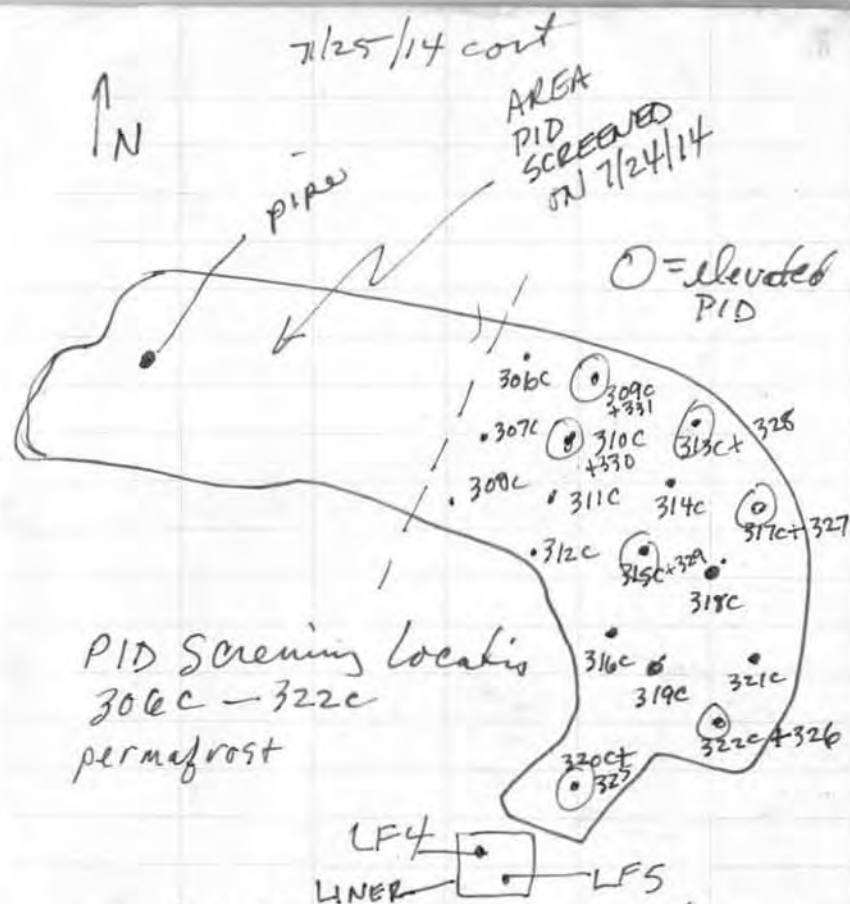 7/25/14 cont
N
pipe
AREA
PID
SCREENED
ON 7/24/14
O = elevated
PID
306C
309C
+331
307C
310C
+330
313C+ 328
308C
311C
314C
317C+327
312C
315C+329
318C
316C
319C
321C
322C+326
320C+
325
PID Screening Locatis
306C - 322C
permafrost
LF4
LINER
LF5